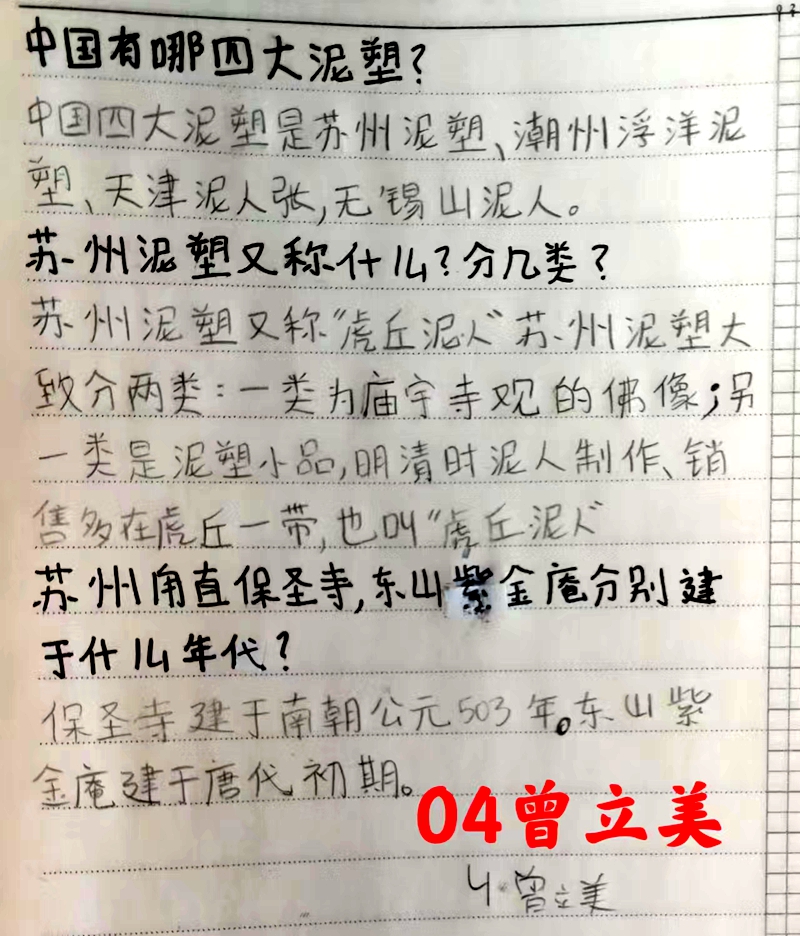 中国有哪四大泥塑?
中国四大泥塑是苏州泥塑、潮州浮洋泥
塑、天津泥人张,无锡山泥人。
苏州泥塑又称什么?分几类?
苏州泥塑又称“虎丘泥人”苏州泥塑大
致分两类:一类为庙宇寺观的佛像;另
一类是泥塑小品,明清时泥人制作、销
售多在虎丘一带,也叫“虎丘泥人”
苏州甪直保圣寺,东山紫金庵分别建
于什么年代?
保圣寺建于南朝公元503年。东山紫
金庵建于唐代初期。
04曾立美
4.曾立美